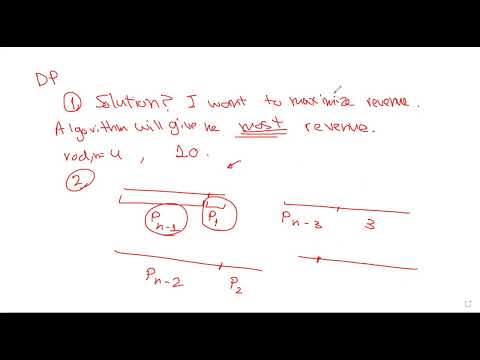 DP
1. Solution? I want to maximize revenue.
Algorithm will give me most revenue.
rod, n=4, 10.
2.
Pn-1 P1
Pn-3 3
Pn-2 P2